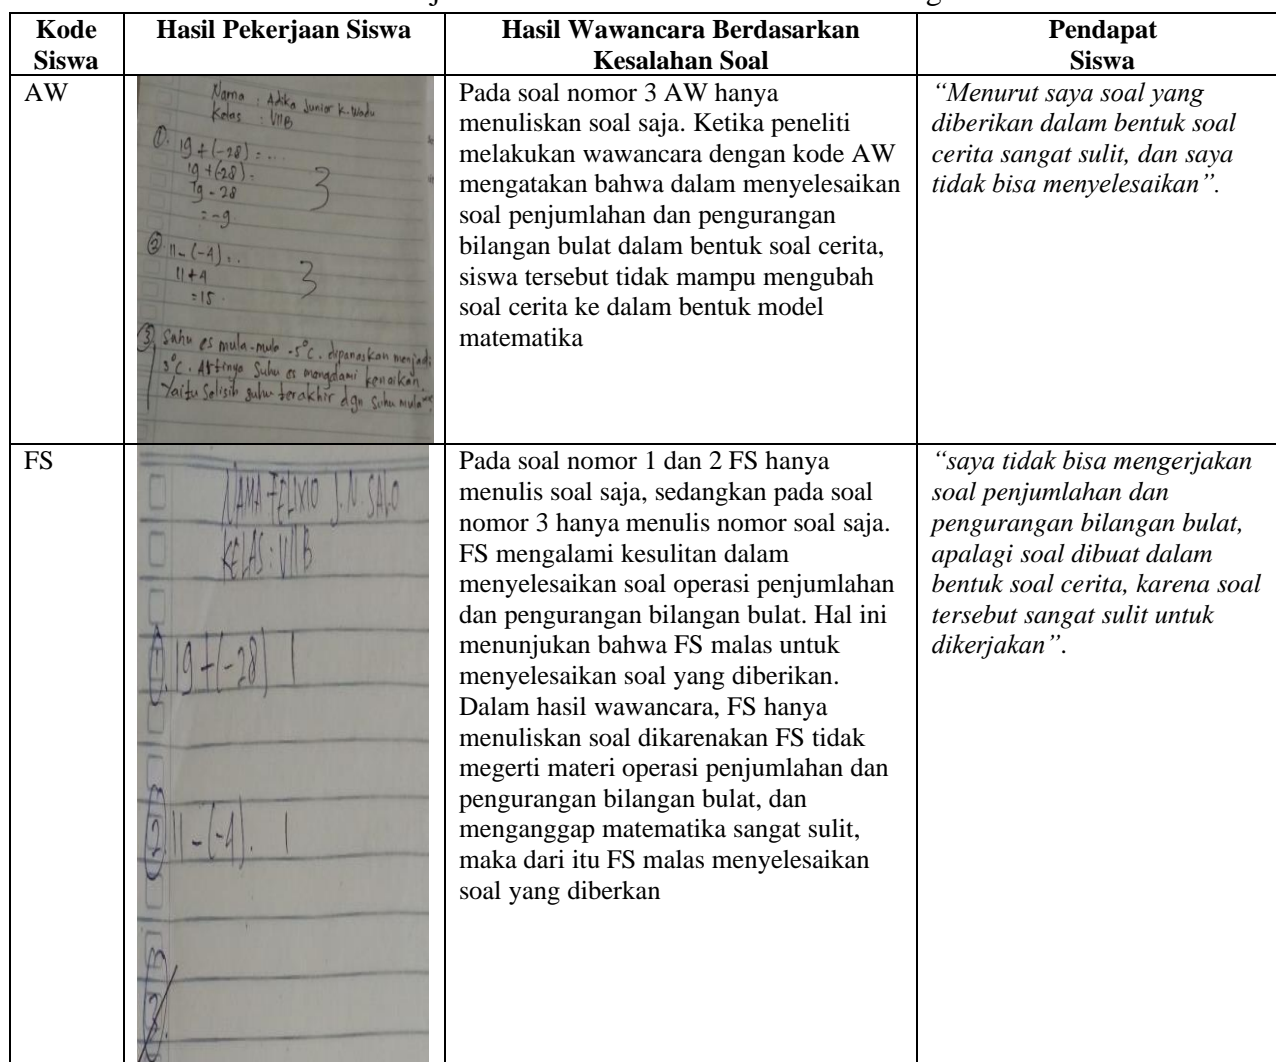 Kode
Siswa
Hasil Pekerjaan Siswa
Hasil Wawancara Berdasarkan
Kesalahan Soal
Pendapat
Siswa
AW
Nama : Adika Junior K. Wadu
Kelas : VIIB
1. 19 + (-28) = ...
19 + (-28) =
19 - 28
= -9
3
2 11 - (-4) ..
11 + 4
= 15.
3
3 Suhu es mula-mula -5°C. dipanaskan menjadi
3°C. Artinya Suhu es mengalami kenaikan.
Yaitu Selisih suhu terakhir dgn Suhu mula
Pada soal nomor 3 AW hanya
menuliskan soal saja. Ketika peneliti
melakukan wawancara dengan kode AW
mengatakan bahwa dalam menyelesaikan
soal penjumlahan dan pengurangan
bilangan bulat dalam bentuk soal cerita,
siswa tersebut tidak mampu mengubah
soal cerita ke dalam bentuk model
matematika
“Menurut saya soal yang
diberikan dalam bentuk soal
cerita sangat sulit, dan saya
tidak bisa menyelesaikan”.
FS
NAMA FELIXIO J.N. SALO
KELAS : VIIB
1. 19 + (-28) 1
2 11 - (-4). 1
3.
Pada soal nomor 1 dan 2 FS hanya
menulis soal saja, sedangkan pada soal
nomor 3 hanya menulis nomor soal saja.
FS mengalami kesulitan dalam
menyelesaikan soal operasi penjumlahan
dan pengurangan bilangan bulat. Hal ini
menunjukan bahwa FS malas untuk
menyelesaikan soal yang diberikan.
Dalam hasil wawancara, FS hanya
menuliskan soal dikarenakan FS tidak
megerti materi operasi penjumlahan dan
pengurangan bilangan bulat, dan
menganggap matematika sangat sulit,
maka dari itu FS malas menyelesaikan
soal yang diberkan
“saya tidak bisa mengerjakan
soal penjumlahan dan
pengurangan bilangan bulat,
apalagi soal dibuat dalam
bentuk soal cerita, karena soal
tersebut sangat sulit untuk
dikerjakan”.